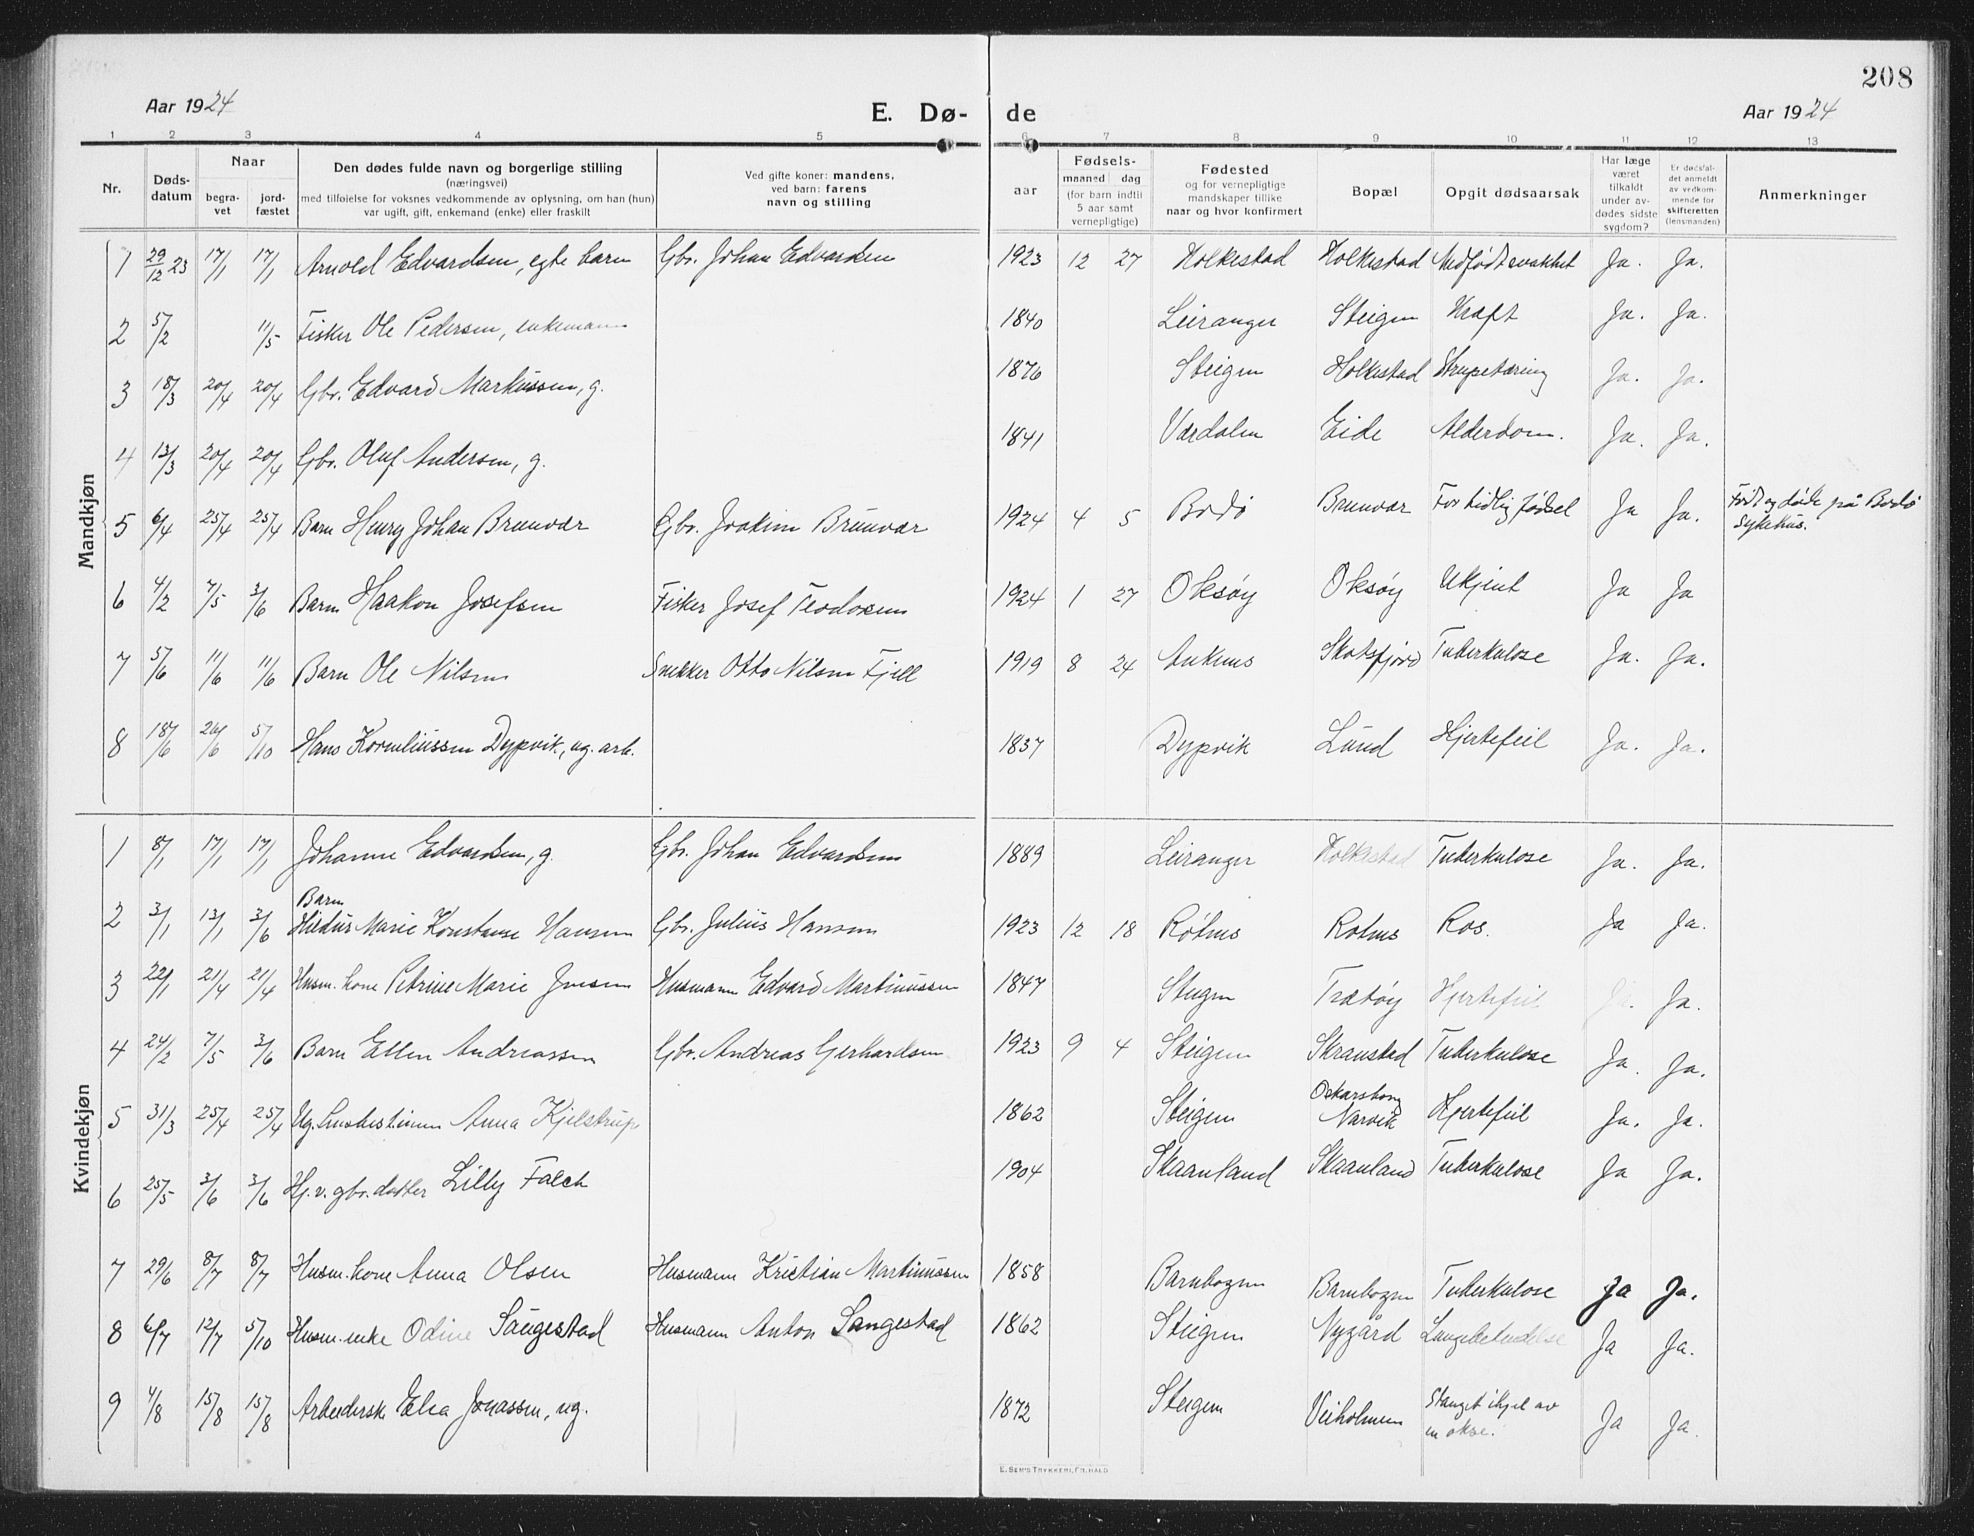 208
Aar 1924 E. Dø- de Aar 1924
1 2 3 4 5 6 7 8 9 10 11 12 13
Nr. Dødsdatum Naar begravet jordfæstet
Den dødes fulde navn og borgerlige stilling
(næringsvei)
med tilføielse for voksnes vedkommende av oplysning, om han (hun)
var ugift, gift, enkemand (enke) eller fraskilt
Ved gifte koner: mandens,
ved barn: farens
navn og stilling
aar
Fødsels-
maaned dag
(for barn indtil
5 aar samt
vernepligtige)
Fødested
og for vernepligtige
mandskaper tillike
naar og hvor konfirmert
Bopæl
Opgit dødsaarsak
Har læge
været
tilkaldt
under av-
dødes sidste
sygdom?
Er dødsfal-
det anmeldt
av vedkom-
mende for
skifteretten
(lensmanden)
Anmerkninger
Mandkjøn
1 29/12 23 17/1 17/1 Arnold Edvardsen, egte barn Gbr. Johan Edvardsen 1923 12 27 Holkestad Holkestad Medfødt svakhet Ja. Ja.
2 5/2 11/5 Fisker Ole Pedersen, enkemann 1840 Leiranger Steigen Kræft Ja. Ja.
3 18/3 20/4 20/4 Gbr. Edvard Markussen, g. 1876 Steigen Holkestad Strupetæring Ja. Ja.
4 13/3 20/4 20/4 Gbr. Oluf Andersen, g. 1841 Værdalen Eide Alderdom. Ja. Ja.
5 6/4 25/4 25/4 Barn Henry Johan Brunvær Gbr. Joakim Brunvær 1924 4 5 Bodø Brunvær For tidlig fødsel Ja Ja. Født og døde på Bodø
Sykehus.
6 4/2 7/5 3/6 Barn Haakon Josefsen Fisker Josef Teodorsen 1924 1 27 Oksøy Oksøy Ukjent Ja Ja
7 5/6 11/6 11/6 Barn Ole Nilsen Snekker Otto Nilsen Fjell 1919 8 24 Ankenes Skotsfjord Tuberkulose Ja. Ja.
8 18/6 26/6 5/10 Hans Korneliussen Dypvik, ug. arb. 1837 Dypvik Lund Hjertefeil Ja. Ja.
Kvindekjøn
1 8/1 17/1 17/1 Johanne Edvardsen, g. Gbr. Johan Edvardsen 1889 Leiranger Holkestad Tuberkulose Ja. Ja.
Barn
2 3/1 13/1 3/6 Hildur Marie Konstanse Hansen Gbr. Julius Hansen 1923 12 18 Røtnes Rotnes Ros. Ja Ja.
3 22/1 21/4 21/4 Husm. kone Petrine Marie Jensen Husmann Edvard Martinussen 1847 Steigen Trætøy Hjertefeil Ja. Ja.
4 24/2 7/5 3/6 Barn Ellen Andreassen Gbr. Andreas Gerhardsen 1923 9 4 Steigen Skranstad Tuberkulose Ja. Ja.
5 31/3 25/4 25/4 Ug. Anna Kjelstrup 1862 Steigen Oskarsborg
Narvik Hjertefeil Ja. Ja.
6 25/5 3/6 3/6 Hj.v. gbr. datter Lilly Falch 1904 Skaanland Skaanland Tuberkulose Ja Ja.
7 29/6 8/7 8/7 Husm. kone Anna Olsen Husmann Kristian Martinussen 1858 Barnbogen Barnbogen Tuberkulose Ja Ja.
8 6/7 12/7 5/10 Husm. enke Odine Sangestad Husmann Anton Sangestad 1862 Steigen Nygård Lungebetendelse Ja Ja.
9 4/8 15/8 15/8 Arbeiderske Elea Jonassen, ug. 1872 Steigen Veiholmen Stanget ihjel av
en okse. Ja Ja.
E. SEM'S TRYKKERI, FR.HALD